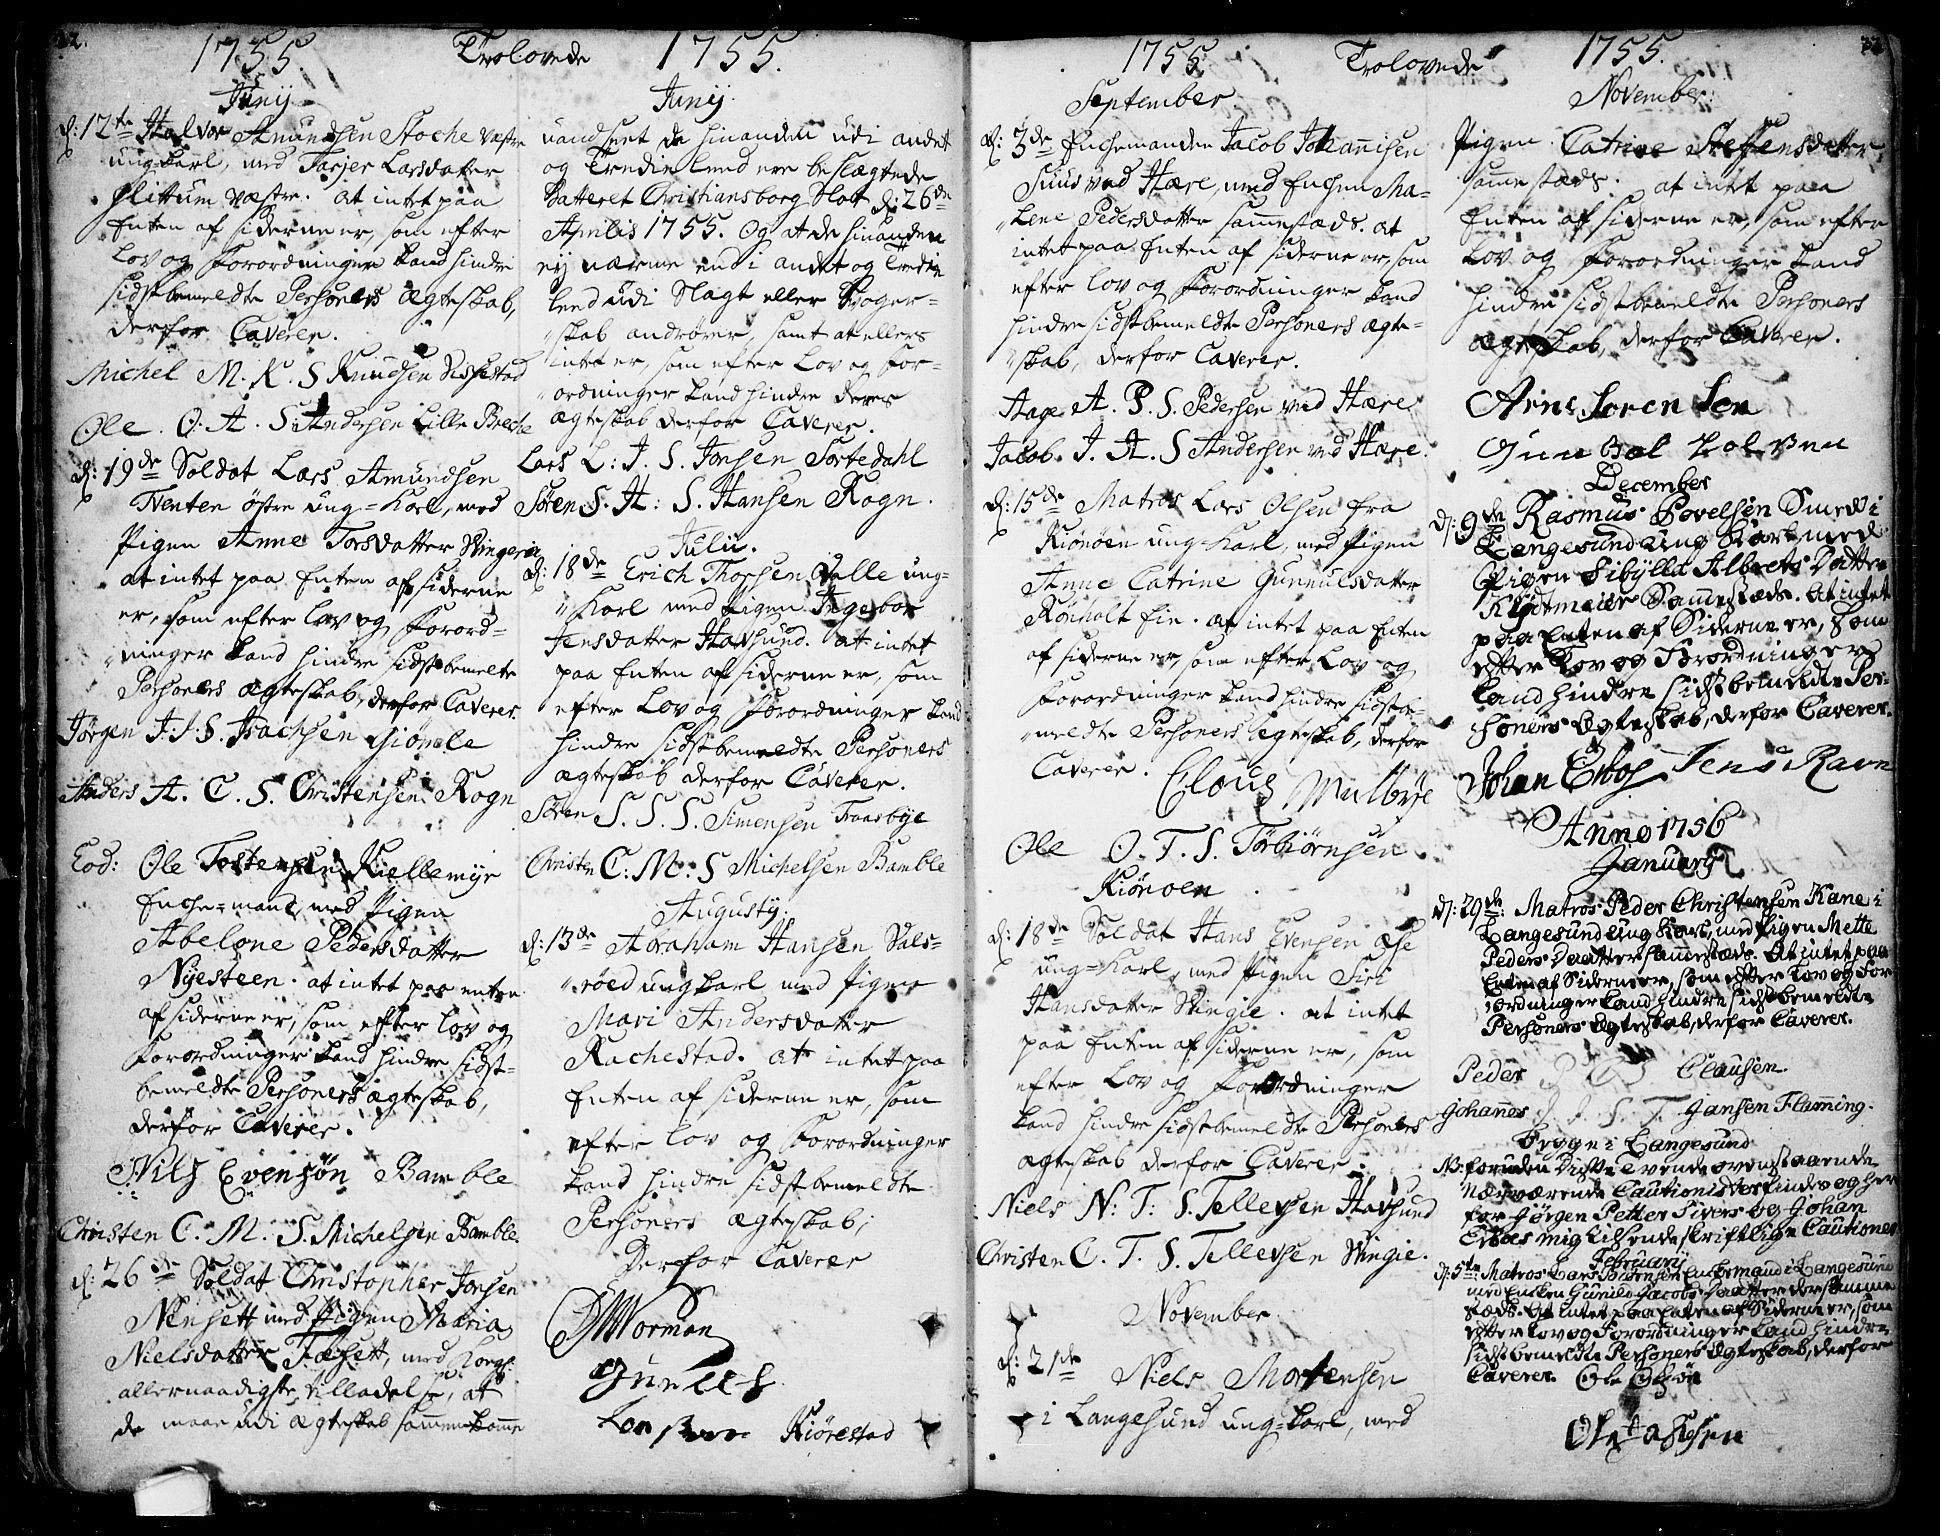 22.
1755 Trolovede 1755.
Junij
d: 12te Halvor Amundsen Stoche Vestre
ung-karl, med Tarjer Larsdatter
Flittum vestre. at intet paa
Enten af Siderne er, som efter
Lov og Forordninger kand hindre
sidstbemeldte Persohners Ægteskab,
derfor Caverer.
Michel M. K. S Knudsen
Ole. O. A. S. Andersen Lille Breche
d: 19de Soldat Lars Amundsen
Tventen östre ung-Karl, med
Pigen Anne Torsdatter Stingerie
at intet paa Enten af Siderne
er, som efter Lov og Forord-
ninger kand hindre sidstbemelte
Personers Ægteskab, derfor Caverer.
Jørgen J. J. S. Isachsen Giömle
Anders A. C. S. Christensen Rogn
Eod: Ole Tostensen Kiellemyr
Enche-mand, med Pigen
Abelone Pedersdatter
Nyesteen. at intet paa enten
af Siderne er, som efter Lov og
Forordninger kand hindre sidst-
bemeldte Persohners Ægteskab,
derfor Caverer.
Nils Evensön Bamble
Christen C. M. S. Michelsen Bamble.
d: 26de Soldat Christopher Jonsen
Nensett med Pigen Maria
Nielsdatter Fæsett, med Kongl:
allernaadigste tilladelse, at
de maae udi Ægteskab sammenkomme
Junij.
uandseet de hinanden udi andet
og Tredie leed ere beslægtede
Datteret Christiansborg Slot d: 26de
Aprilis 1755. Og at de hinanden
eij nærme end i andet og Tredie
leed udi Slagt eller Svoger-
skab andrører, samt at ellers
intet er, som efter Lov og For-
ordninger kand hindre deres
Ægteskab derfor Caverer.
Lars L: J. S. Jonsen Tortedahl
Søren S. H: S. Hansen Rogn.
Julii.
d: 18de Erich Thorsen Valle ung-
Karl med Pigen Ingebor
Jensdatter Havsund. at intet
paa Enten af Siderne er, som
efter Lov og Forordninger kand
hindre sidstbemeldte Persohners
Ægteskab derfor Caverer.
Søren S. S. S. Simensen Traasbye
Christen C: M: S Michelsen Bamble
Augustij.
d: 13de Abraham Hansen Sals-
röed ungkarl med Pigen
Mari Andersdatter
Rachestad. at intet paa
Enten af Siderne er, som
efter Lov og Forordninger
kand hindre sidstbemeldte
Persohners Ægteskab;
Derfor Caverer
Worman
Kiörestad
1755 Trolovede 1755.
September
d: 3de Enchemanden Jacob Johannisen
Suus ved Hære, med Enchen Ma-
lene Pedersdatter sammestæds. at
intet paa Enten af Siderne er, som
efter Lov og Forordninger kand
hindre sidstbemeldte Persohners Ægte-
skab, derfor Caverer.
Aage A. P. S. Pedersen ved Hære
Jacob. J. A. S Andersen ved Hære.
d: 15de Matros Lars Olsen fra
Kiönöen ung-Karl, med Pigen
Anne Catrine Gunnulsdatter
Rönholt fin. at intet paa Enten
af Siderne er, som efter Lov og
Forordninger kand hindre sidstbe-
meldte Persohners Ægteskab, derfor
Caverer.
Claus Mulbye
Ole O. T. S. Törbiörnsen
Kiönoen
d: 18de Soldat Hans Evensen Ase
ung-Karl, med Pigen Siri
Hansdatter Stingie. at intet
paa Enten af Siderne er, som
efter Lov og Forordninger
kand hindre sidstbemeldte Persohners
Ægteskab derfor Caverer.
Niels N: T: S. Tellevsen Havsund
Christen C. T. S. Tellevsen Stingie.
November
d: 21de Niels Mortensen
i Langesund ung-karl, med
November.
Pigen Catrine Steffensdatter
sammestæds. at intet paa
Enten af Siderne er, som efter
Lov og Forordninger kand
hindre sidstbemeldte Persohners
Ægteskab, derfor Caverer.
Arne Soren Sen
December
d: 9de Rasmus Povelsen Smed i
Langesund ung Karl med
Pigen Sibylla Albrets Datter
Kiötmeier Sammestæds. At intet
paa Enten af Siderne er, som
efter Lov og Forordninger
kand hindre sidstbemeldte Per-
sohners Ægteskab, derfor Caverer.
Johan Erboe Jens Ravn
Anno 1756
January
d: 29de: Matros Peder Christensen Kane i
Langesund ung Karl, med Pigen Mette
Peders Daatter sammestæds. At intet paa
Enten af Siderne er, som efter Lov og For
ordninger kand hindre sidstbemeldte
Persohners Ægteskab, derfor Caverer.
Peder P C S Clausen.
Johannes J. J. S. F. Jansen Flemming.
bygge i Langesund
NB: foruden disse tvende ovenstaaende
Nærværende Cautionister findes og her
for Jørgen Petter Sivers og Johan
Erboes mig tilsendte skriftlige Cautioner
February
d: 5te: Matros Lars Enckemand i Langesund
med Encken Gunild Jacobs Daatter der samme
stæds. At Intet paa Enten af Siderne er, som
efter Lov og Forordninger kand hindre
sidstbemeldte Persohners Ægteskab, derfor
Caverer. Ole Olsøn